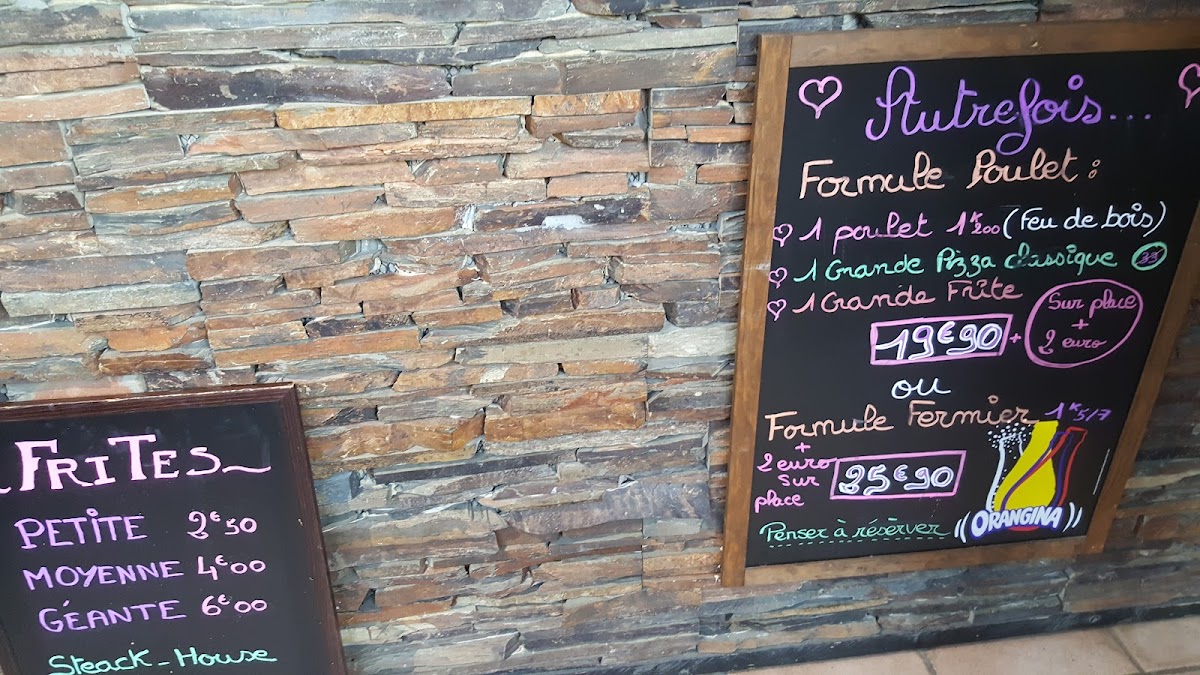 FRITES
PETITE 2€50
MOYENNE 4€00
GÉANTE 6€00
Steack-House
Autrefois...
Formule Poulet :
1 poulet 1K200 (Feu de bois)
1 Grande Pizza classique 33
1 Grande Frite
19€90 + Sur place + 2 euro
ou
Formule Fermier 1K5/7
+ 2 euro sur place
25€90
Penser à résèrver
ORANGINA